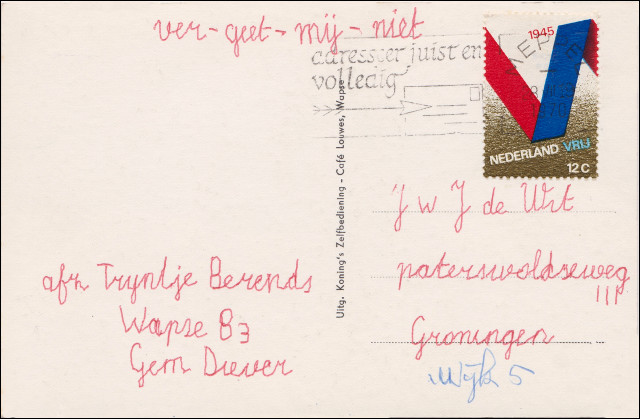 ver-geet-mij-niet
adresseer juist en
volledig
1945
MEPPEL
1970
NEDERLAND VRIJ
12 C
Uitg. Koning's Zelfbediening - Café Louwes, Wapse
J W J de Wit
paterswoldseweg
111
Groningen
Wijk 5
afn Tryntje Berends
Wapse 83
Gem Diever